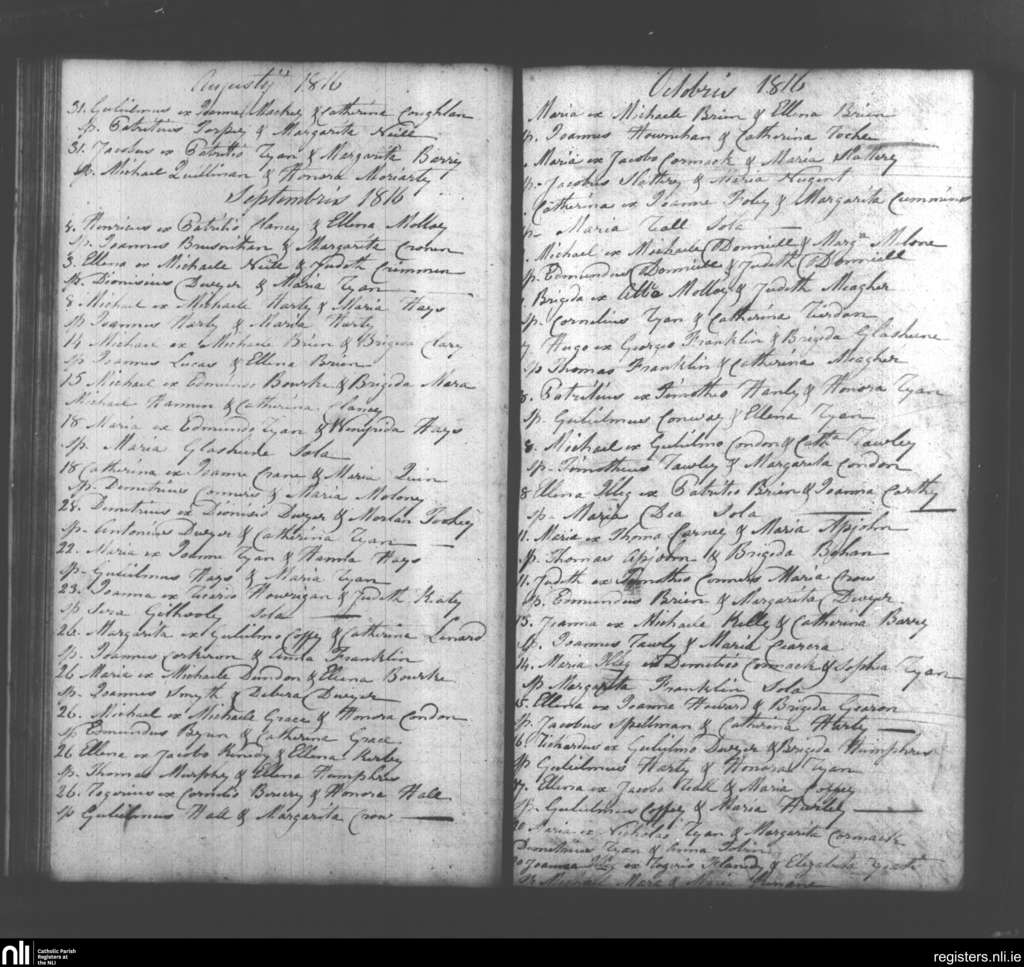 Augustij 1816
31. Gulielmus ex Joanne Mackey & Catherine Coughlan
Sp. Patritius Torpey & Margarita Neill
31. Jacobus ex Patritio Ryan & Margarita Barry
Sp. Michael Quillman & Honora Moriarty
Septembris 1816
Henricus ex Patritio Clancy & Ellena Molloy
Sp. Joannes Brusnihan & Margarita
3. Ellena ex Michaele Neill & Judith Crimmin
Sp. Dionisius Dwyer & Maria Ryan
8 Michael ex Michaele Harty & Maria Hays
Sp Joannes Harty & Maria Harty
14 Michael ex Michaele Brien & Brigida Clary
Sp Joannes Lucas & Ellena Brien
15 Michael ex Edmundo Bourke & Brigida Mara
Michael & Catherina Clancy
18 Maria ex Edmundo Ryan & Winifrida Hays
Sp. Maria Glasheene Sola
18 Catherina ex Joanne Crane & Maria Quin
Sp. Demetrius Conners & Maria Molony
Demetrius ex Dionisio Dwyer & Tookey
Sp. Antonius Dwyer & Catherina Ryan
22. Maria ex Joanne Ryan & Hays
Sp. Gulielmus Hays & Maria Ryan
23. Joanna ex Hourigan & Judith Kealy
Sp Gilhooly Sola
26. Margarita ex Gulielmo Coffey & Catherine Lenard
Sp. Joannes Corkeron & Anna Franklin
26 Maria ex Michaele Dundon & Ellena Bourke
Sp. Joannes Smyth & Debora Dwyer
26. Michael ex Michaele Grace & Honora Condon
Sp Edmundus Bryan & Catherina Grace
26 Ellena ex Jacobo Kenedy & Ellena Kerby
Sp. Thomas Murphy & Ellena Humphris
26. Rogerius ex Cornelio & Honora Hall
Sp Gulielmus Hall & Margarita Crow
Octobris 1816
Maria ex Michaele Brien & Ellena Brien
Sp. Joannes Hournihan & Catherina Roche
Maria ex Jacobo Cormack & Maria Slattery
Sp. Jacobus Slattery & Maria Nugent
Catherina ex Joanne Foley & Margarita Cummins
Sp Maria Sola
Michael ex Michaele ODonniell & Marga Malone
Sp. Edmundus ODonniell & Judith ODonniell
Brigida ex Molloy & Judith Meagher
Sp. Cornelius Ryan & Catherina Riordan
7 Hugo ex Georgio Franklin & Brigida Glasheene
Sp Thomas Franklin & Catherina Meagher
8. Patritius ex Timotheo Hanly & Honora Ryan
Sp. Gulielmus Conway & Ellena Ryan
8. Michael ex Gulielmo Condon & Catha Fawley
Sp. Timotheus Fawley & Margarita Condon
8 Ellena Illeg ex Patritio Brien & Joanna Carthy
Sp. Maria Dea Sola
11. Maria ex Thoma Carney & Maria Apjohn
Sp. Thomas Apjohn & Brigida Bohan
11. Judith ex Timotheo Conners Maria Crow
Sp. Edmundus Brien & Margarita Dwyer
13. Joanna ex Michaele Kelly & Catherina Barry
Sp. Joannes Fawly & Maria
14. Maria Illeg ex Demetrio Cormack & Sophia Ryan
Sp Margarita Franklin Sola
15. Ellena ex Joanne Howard & Brigida Gearon
Sp. Jacobus Spellman & Catherina Harty
16 Richardus ex Gulielmo Dwyer & Brigida Humphris
Sp Gulielmus Harty & Honora Ryan
17. Ellena ex Jacobo & Maria Coffey
Sp. Gulielmus Coffey & Maria
20 Maria ex Nicholao Ryan & Margarita Cormack
Demetrius Ryan & Anna Tobin
20 Joanna Illeg ex Rogerio & Elizabetha
Sp Michael Mara & Maria
nli
Catholic Parish
Registers at
the NLI
registers.nli.ie